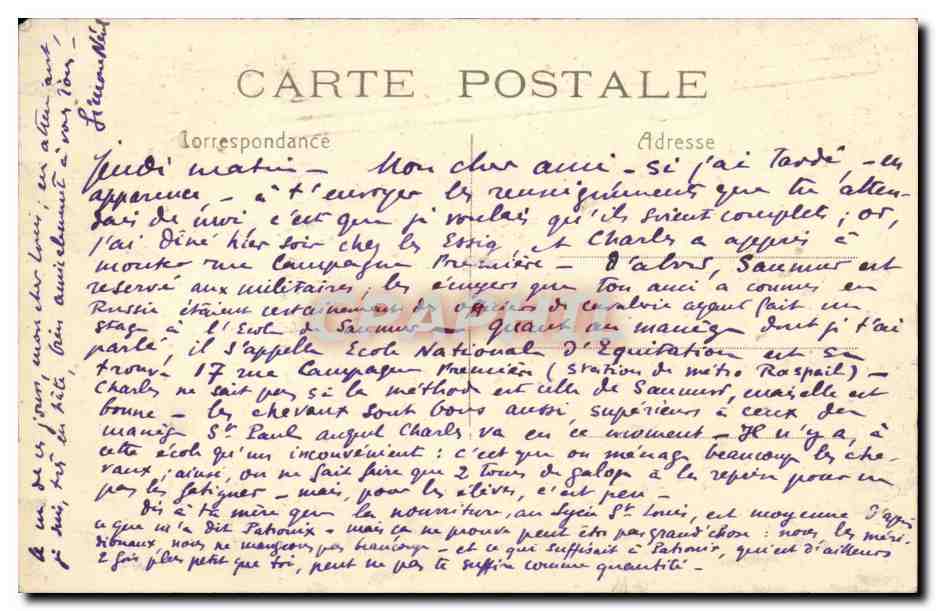 CARTE POSTALE
Correspondance
Adresse
Jeudi matin - Mon cher ami - si j'ai tardé, - en
apparence, - à t'envoyer les renseignements que tu atten-
dais de moi c'est que je voulais qu'ils soient complets ; or,
j'ai dîné hier soir chez les Essig, et Charles a appris à
monter rue Campagne Première - D'abord, Saumur est
reservé aux militaires, les écuyers que ton ami a connus en
Russie étaient certainement des officiers de cavalerie ayant fait un
stage à l'Ecole de Saumur - Quant au manège dont je t'ai
parlé, il s'appelle Ecole Nationale d'Equitation et se
trouve 17 rue Campagne Première (station de métro Raspail) -
Charles ne sait pas si la méthode est celle de Saumur, mais elle est
bonne - les chevaux sont bons aussi, supérieurs à ceux du
manège St Paul auquel Charles va en ce moment - Il n'y a, à
cette école qu'un inconvénient : c'est que on ménage beaucoup les che-
vaux ; ainsi, on ne fait faire que 2 tours de galop à la reprise pour ne
pas les fatiguer - mais, pour les élèves, c'est peu -
Dis à ta mère que la nourriture, au lycée St Louis, est moyenne d'après
ce que m'a dit - mais ça ne prouve peut être pas grand'chose : nous, les méri-
dionaux nous ne mangeons pas beaucoup - et ce qui suffisait à qui est d'ailleurs
2 fois plus petit que toi, peut ne pas te suffire comme quantité -
A un de ces jours, mon cher Louis ; en attendant,
je suis, très en hâte, bien amicalement à vous tous -
Simone